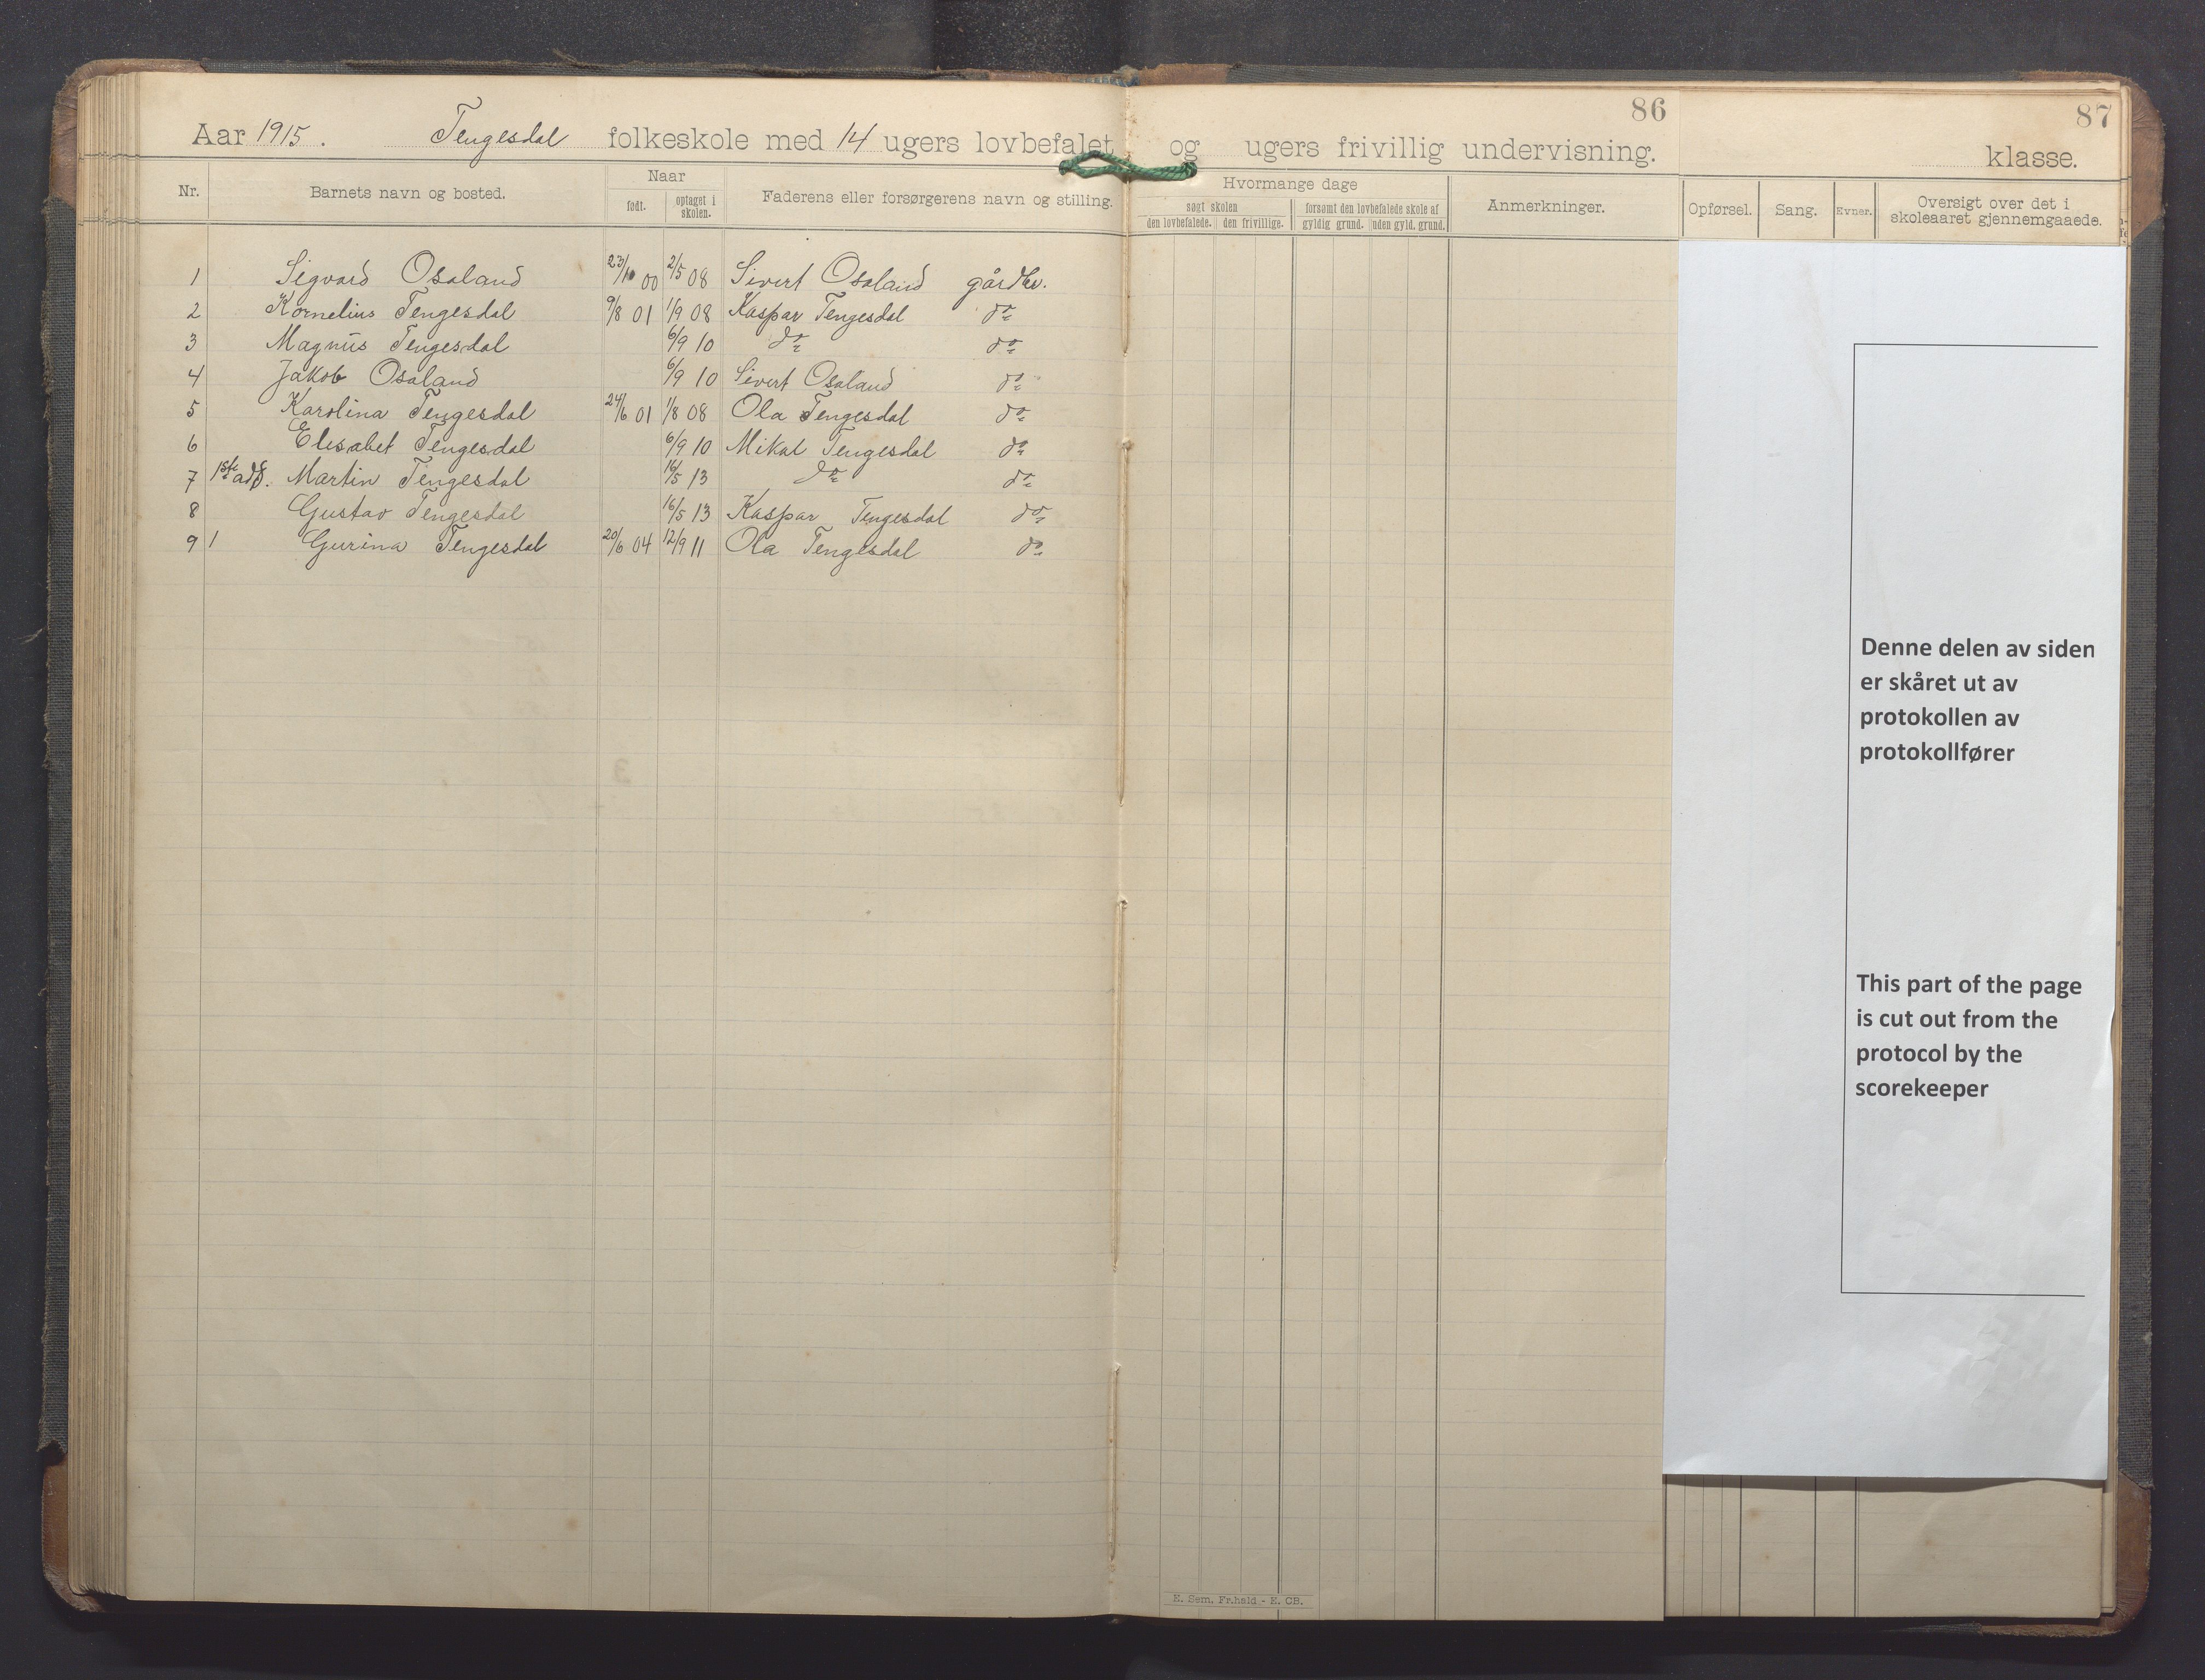 86
87
Aar 1915. Tengesdal folkeskole med 14 ugers lovbefalet og ugers frivillig undervisning.
klasse.
Nr. Barnets navn og bosted. Naar Faderens eller forsørgerens navn og stilling. Hvormange dage Anmerkninger. Opførsel. Sang. Evner. Oversigt over det i
skoleaaret gjennemgaaede.
født. optaget i
skolen.
søgt skolen forsømt den lovbefalede skole af
den lovbefalede. den frivillige. gyldig grund. uden gyld. grund.
1 Sigvard Osaland 23/10 00 2/5 08 Sivert Osaland gårdbr.
2 Kornelius Tengesdal 9/8 01 1/9 08 Kaspar Tengesdal do
3 Magnus Tengesdal 6/9 10 do do
4 Jakob Osaland 6/9 10 Sivert Osaland do
5 Karolina Tengesdal 24/6 01 1/8 08 Ola Tengesdal do
6 Elisabet Tengesdal 6/9 10 Mikal Tengesdal do
7 1ste adf. Martin Tengesdal 16/5 13 do do
8 Gustav Tengesdal 16/5 13 Kaspar Tengesdal do
9 1 Gurina Tengesdal 20/6 04 12/9 11 Ola Tengesdal do
Denne delen av siden
er skåret ut av
protokollen av
protokollfører
This part of the page
is cut out from the
protocol by the
scorekeeper
E. Sem, Fr.hald - E. CB.